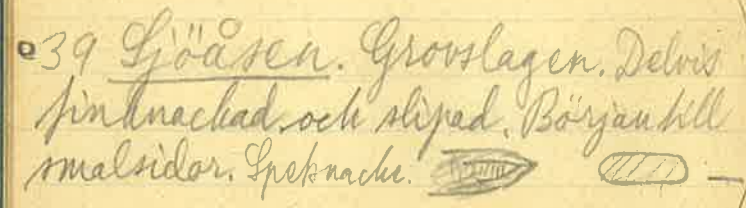 39 Sjöåsen. Grovslagen. Delvis
finknackad och slipad. Början till
smalsidor. Spetsnacke.